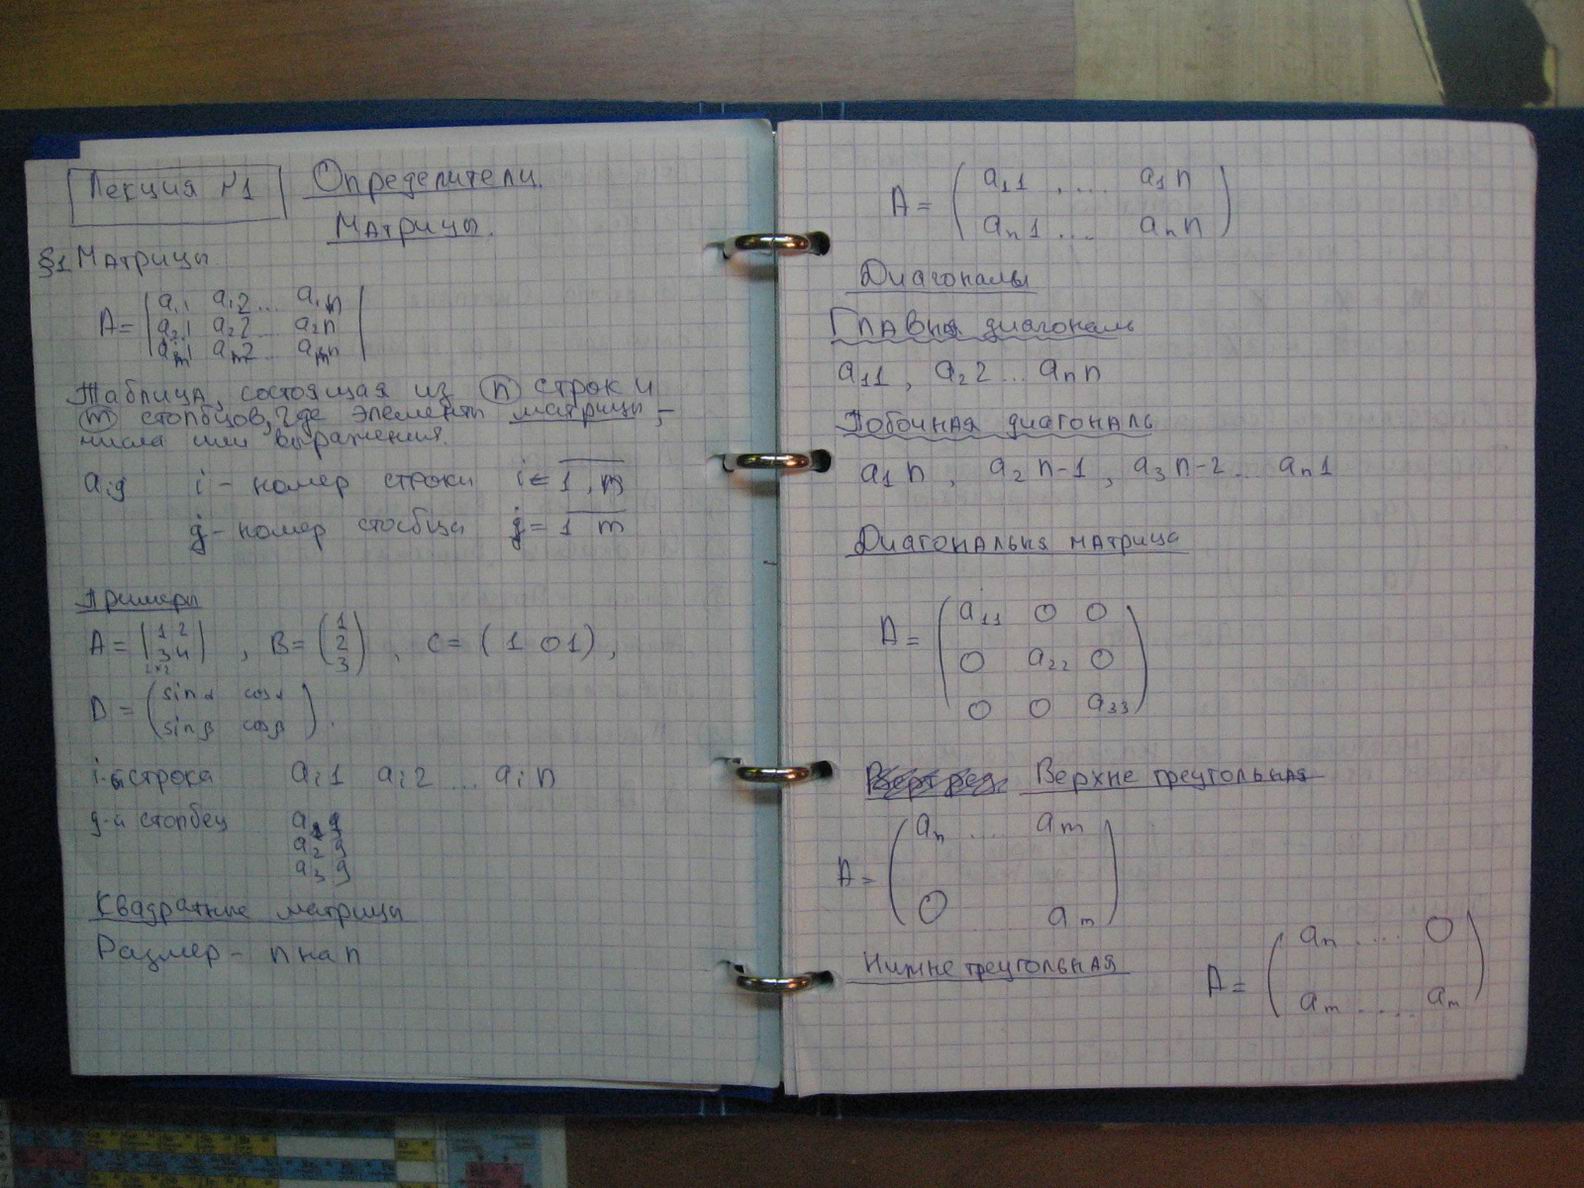 Лекция №1 Определители.
Матрицы.
§1 Матрицы
A = | a11 a12 ... a1n |
| a21 a22 ... a2n |
| am1 am2 ... amn |
Таблица, состоящая из (n) строк и
(m) столбцов, где элементы матрицы –
числа или выражения.
aij i – номер строки i = 1, m
j – номер стоєбца j = 1 m
Примеры
A = | 1 2 |
| 3 4 |
2×2
, B = ( 1
2
3 ) , C = ( 1 0 1 ) ,
D = ( sin α cos α
sin β cos β ) .
i-ая строка ai1 ai2 ... ain
j-й столбец a1j
a2j
a3j
Квадратные матрицы
Размер – n на n
A = ( a11 .... a1n
an1 .... ann )
Диагонали
Главная диагональ
a11 , a22 ... ann
Побочная диагональ
a1n , a2n-1 , a3n-2 ... an1
Диагональня матрица
A = ( a11 0 0
0 a22 0
0 0 a33 )
Верхне треугольная
A = ( an ... am
0 am )
Нижне треугольная
A = ( an .... 0
am .... am )